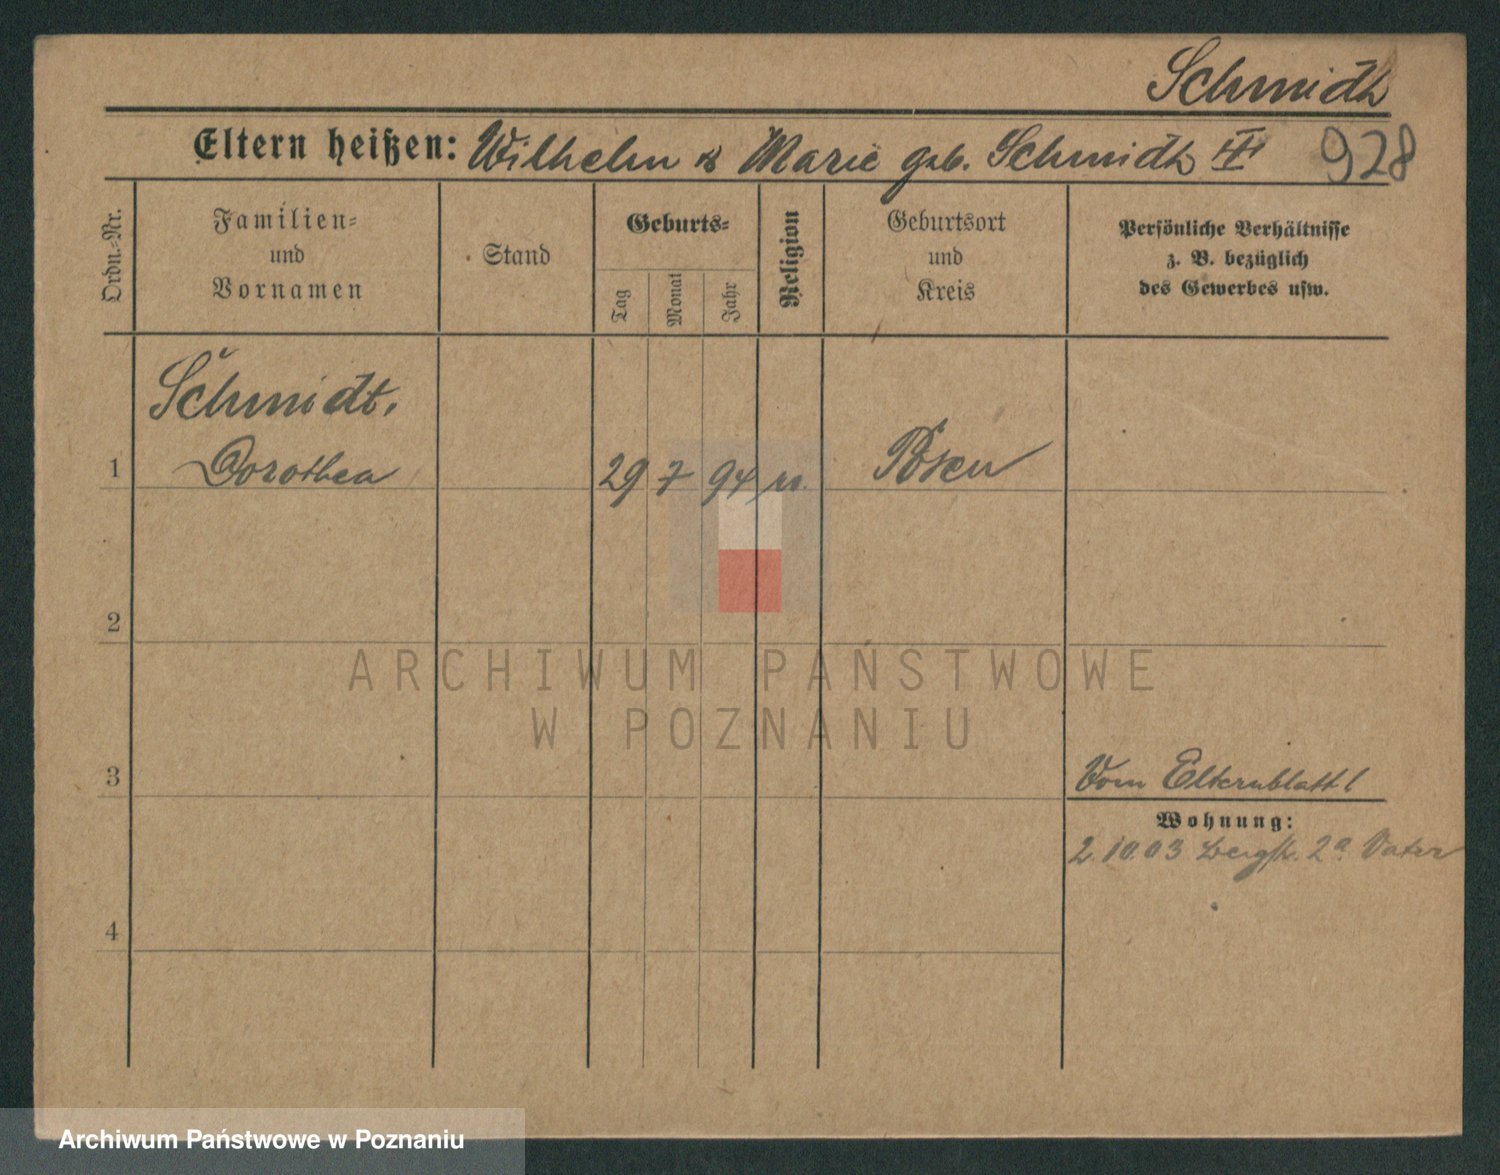 Schmidt
Eltern heißen: Wilhelm & Marie geb. Schmidt III 928
Ordn.-Nr.
Familien-
und
Vornamen
Stand
Geburts-
Tag
Monat
Jahr
Religion
Geburtsort
und
Kreis
Persönliche Verhältnisse
z. B. bezüglich
des Gewerbes usw.
Schmidt,
1 Dorothea 29 7 94 Posen
2
ARCHIWUM PAŃSTWOWE
W POZNANIU
3 Vom Elternblatt!
Wohnung:
2.10.03 Bergstr. 2a Vater
4
Archiwum Państwowe w Poznaniu